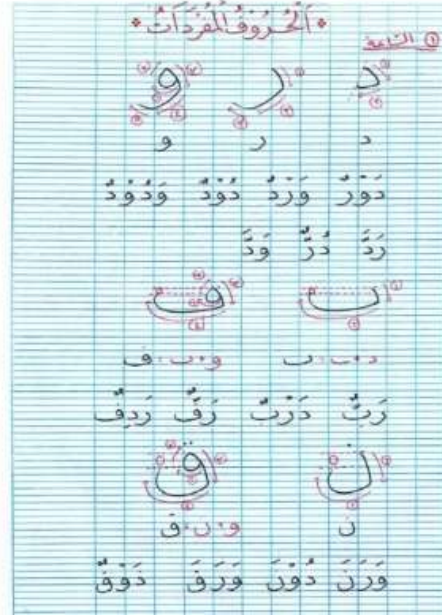 اَلْحُرُوفُ الْمُفْرَدَاتُ
① القاعدة
د ر و
د ر و
دَوْرٌ وَرْدٌ دُوْدٌ وَدُوْدٌ
رَدَّ دُرٌّ وَدَّ
ب ف
د + ب = ب و + ب = ف
رَبٌّ دَرْبٌ رَفٌّ رَدِفٌ
ن ق
ن و + ن = ق
وَرَنَ دُوْنَ وَرَقَ ذَوْقٌ